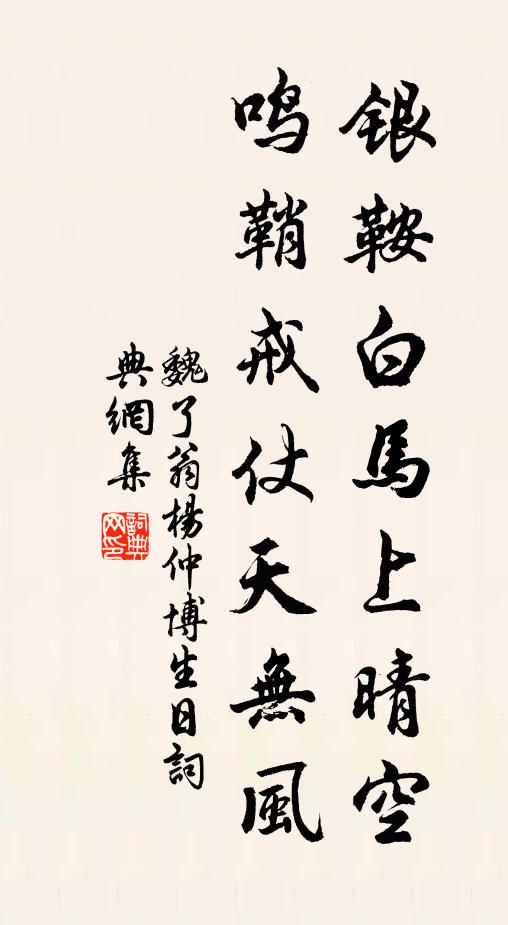 銀鞍白馬上晴空
鳴鞘戒仗天無風
魏了翁楊仲博生日詞
典網集
詞典
网印